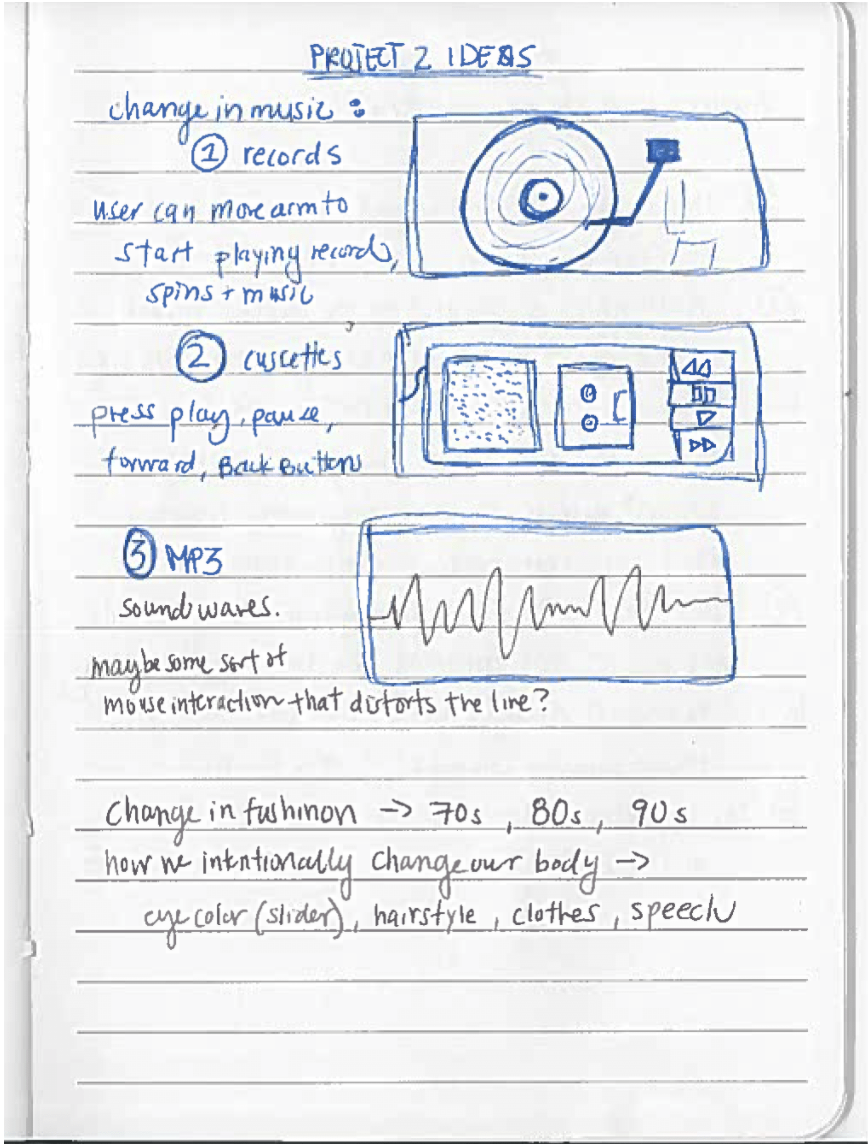 PROJECT 2 IDEAS
change in music :
① records
user can move arm to
start playing record,
spins + music
② cassettes
press play, pause,
forward, Back Buttons
③ MP3
sound waves.
maybe some sort of
mouse interaction that distorts the line?
Change in fashinon → 70s , 80s , 90s
how we intentionally change our body →
eye color (slider) , hairstyle , clothes , speech